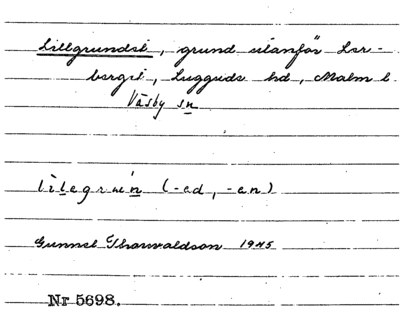 Lillgrundet, grund utanför Ler-
berget, Luggude hd, Malm l.
Väsby sn
(-ed, -en)
Gunnel Thorwaldson 1945
Nr 5698.